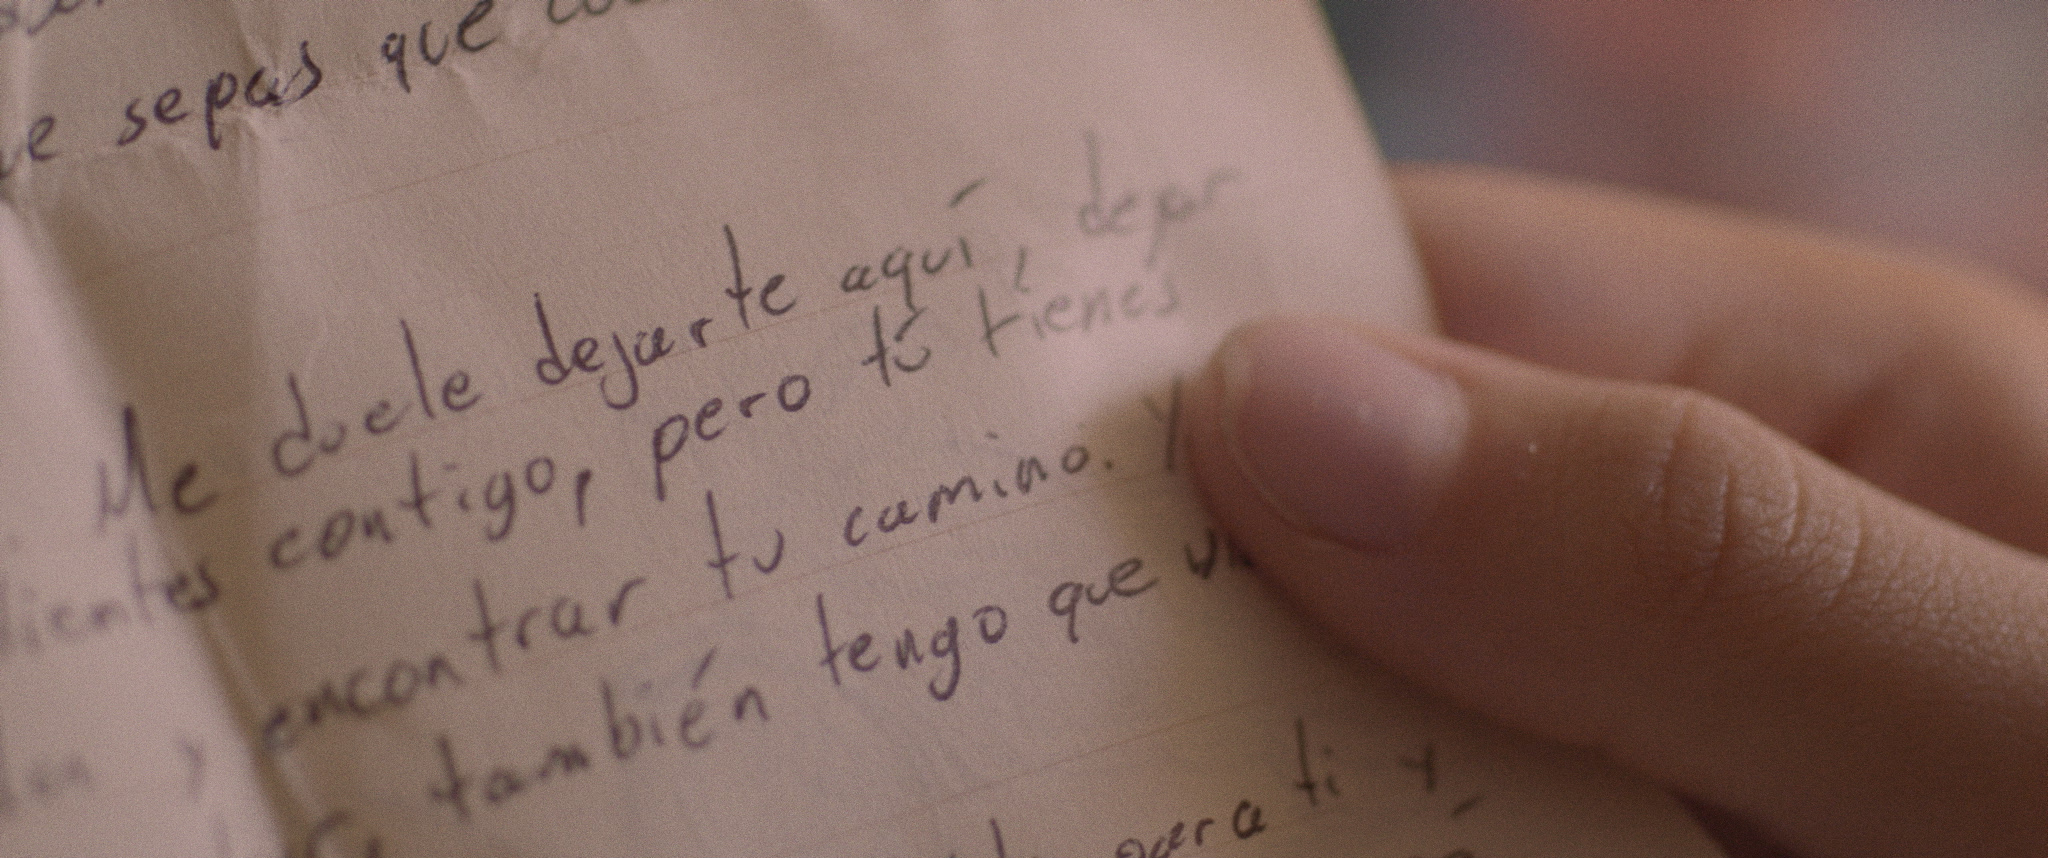 sepas que
Me duele dejarte aquí, dejar
contigo, pero tú tienes
y encontrar tu camino. Y
también tengo que
para ti y